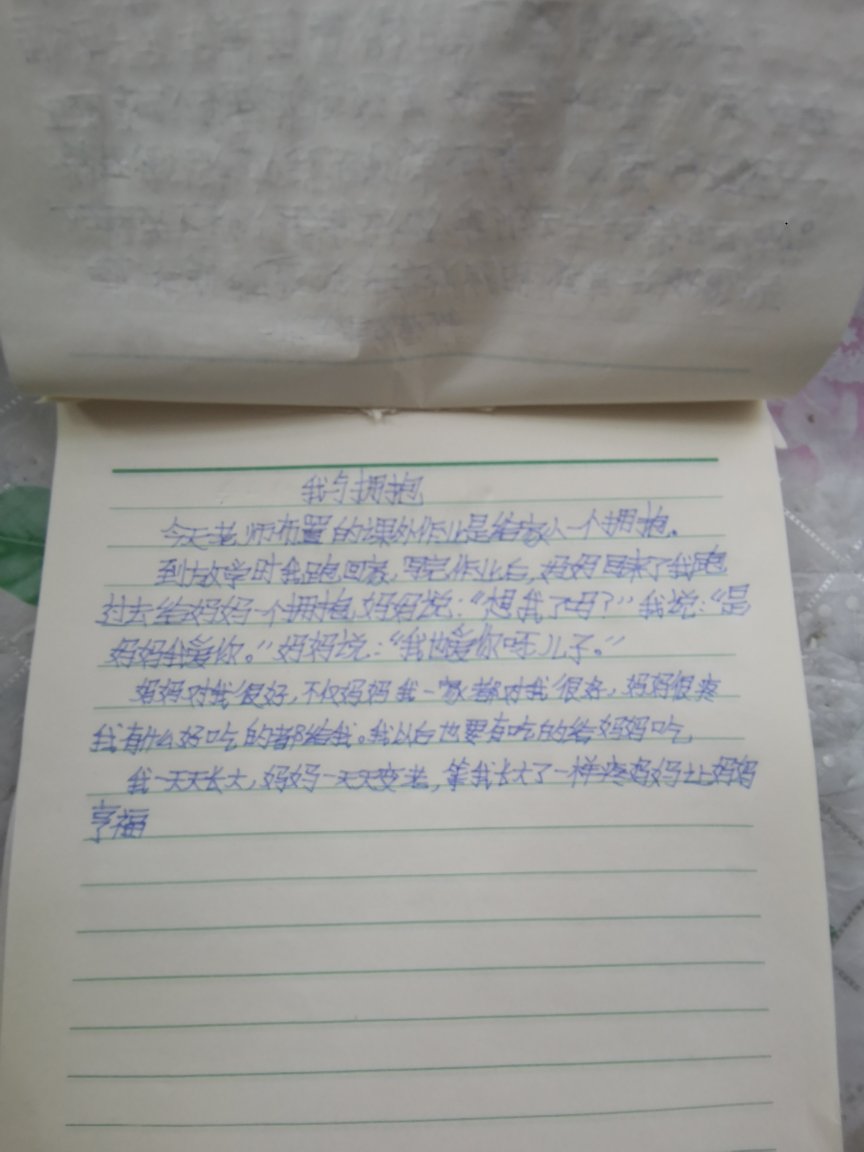 我与拥抱
今天老师布置的课外作业是给家人一个拥抱。
到放学时我跑回家,写完作业后,妈妈回来了我跑
过去给妈妈一个拥抱,妈妈说:“想我了吗?”我说:“是
妈妈我爱你。”妈妈说:“我也爱你呀儿子。”
妈妈对我很好,不仅妈妈我一家都对我很好,妈妈很疼
我有什么好吃的都给我。我以后也要有吃的给妈妈吃
我一天天长大,妈妈一天天变老,等我长大了一样疼妈妈让妈妈
享福